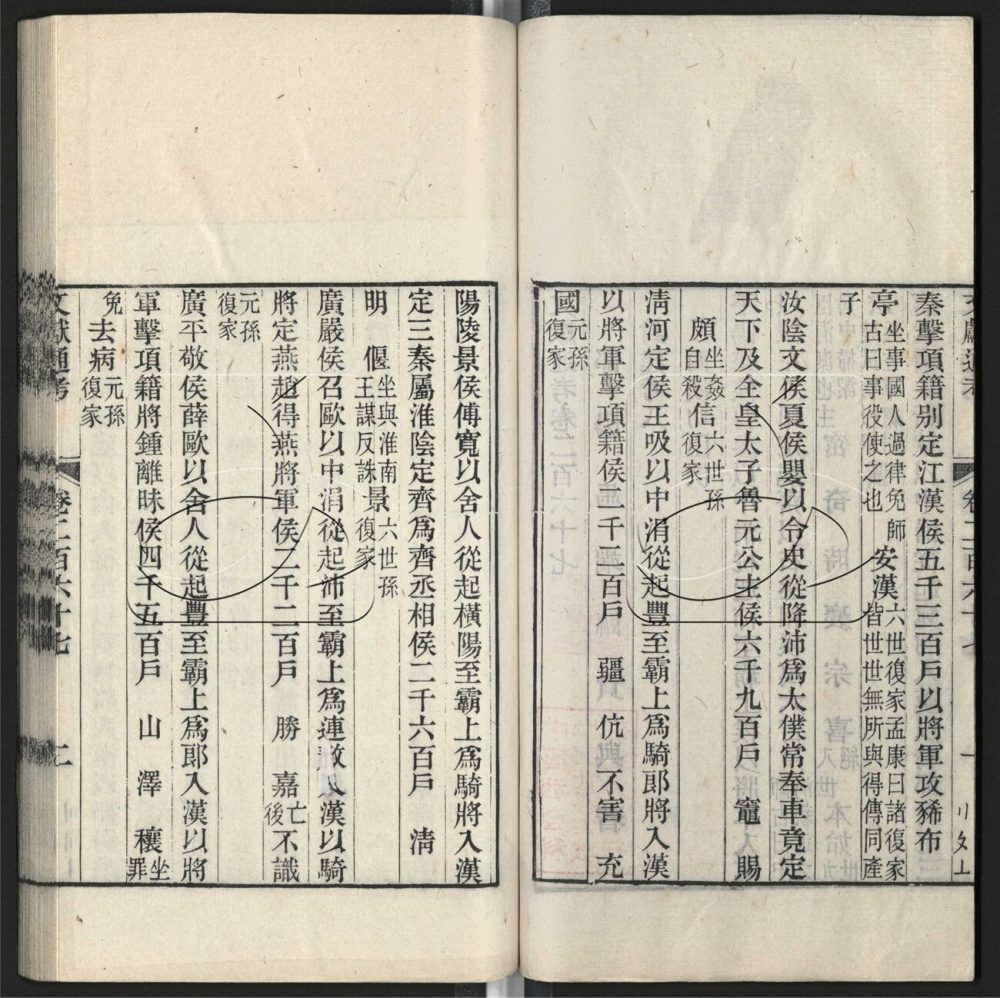 秦擊項籍別定江漢侯五千三百戶以將軍攻豨布
亭坐事國人過律免師古曰事役使之也安漢六世復家孟康曰諸復家皆世世無所與得傳同產
子
汝陰文侯夏侯嬰以令史從降沛爲太僕常奉車竟定
天下及全皇太子魯元公主侯六千九百戶 竈 賜
頗坐姦自殺信六世孫復家
淸河定侯王吸以中涓從起豐至霸上爲騎郎將入漢
以將軍擊項籍侯二千二百戶 疆 伉 不害 充
國元孫復家
陽陵景侯傅寬以舍人從起橫陽至霸上爲騎將入漢
定三秦屬淮陰定齊爲齊丞相侯二千六百戶 淸
明 偃坐與淮南王謀反誅景六世孫復家
廣嚴侯召歐以中涓從起沛至霸上爲連敖入漢以騎
將定燕趙得燕將軍侯二千二百戶 勝 嘉亡後不識
元孫復家
廣平敬侯薛歐以舍人從起豐至霸上爲郎入漢以將
軍擊項籍將鍾離眛侯四千五百戶 山 澤 穰坐罪
免去病元孫復家
文獻通考 卷二百六十七